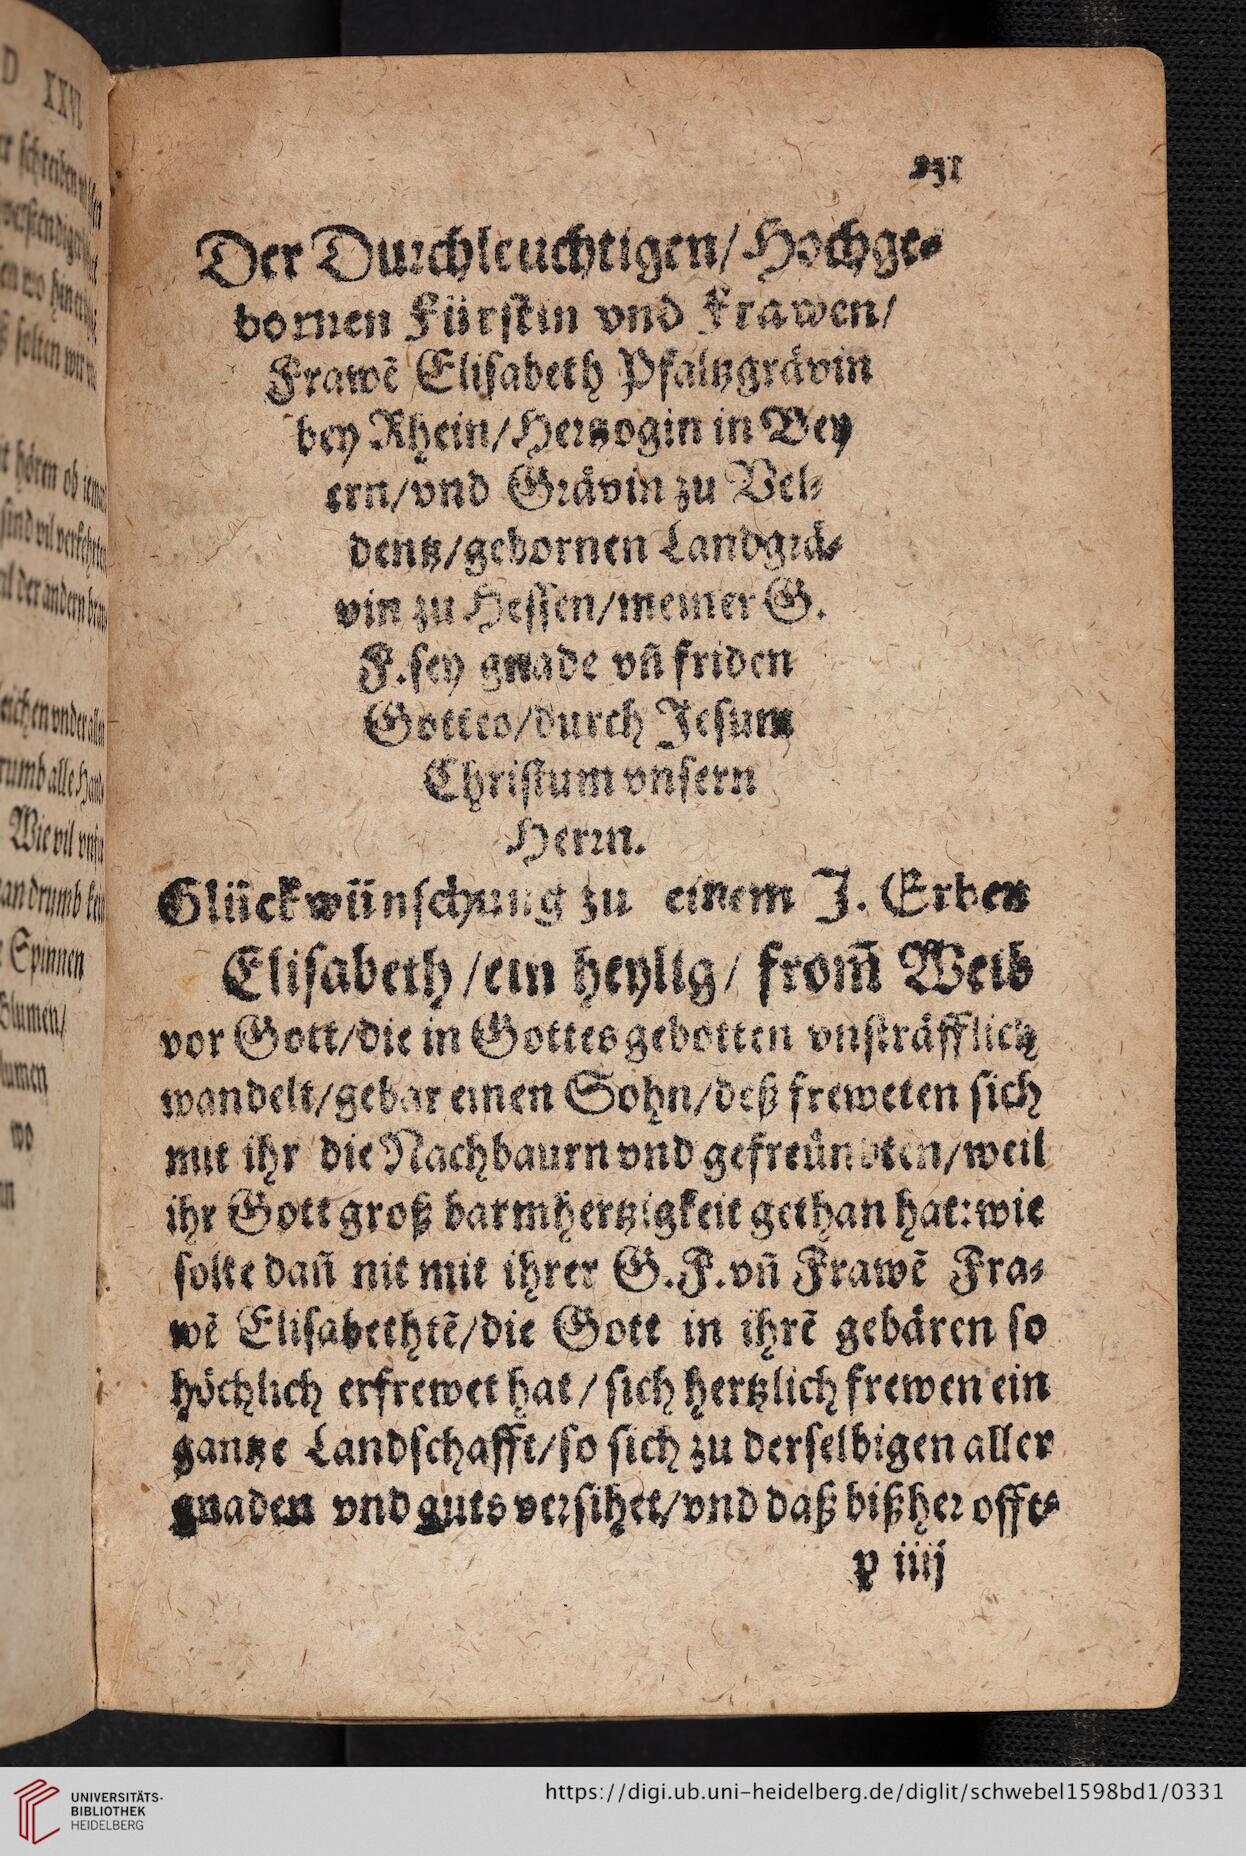 Der Durchleuchtigen/ Hochge⸗
bornen Fürstin vnd Frawen/
Frawẽ Elisabeth Pfaltzgrävin
bey Rhein/Hertzogin in Bey
ern/vnd Grävin zu Vel⸗
dentz/gebornen Landgrä⸗
vin zu Hessen/meiner G.
F.sey gnade vñ friden
Gottes/durch Jesum
Christum vnsern
Herrn.
Glückwünschung zu einem J. Erben
Elisabeth/ein heylig/ from̃ Weib
vor Gott/die in Gottes gebotten vnsträfflich
wandelt/gebar einen Sohn/deß freweten sich
mit ihr die Nachbaurn vnd gefreůndten/weil
ihr Gott groß barmhertzigkeit gethan hat:wie
solte dañ nit mit ihrer G.F.vñ Frawẽ Fra⸗
wẽ Elisabethtẽ/die Gott in ihrẽ gebären so
höchlich erfrewet hat/ sich hertzlich frewen ein
gantze Landschafft/so sich zu derselbigen aller
gnaden vnd guts versihet/vnd daß bißher offt⸗
p iiij
D XXVI.
schreiben
hin
solten wir
hören ob
sind vil
der andern
vnder
alle
Wie vil
drumb
Spinnen
Blumen/
wo
UNIVERSITÄTS-
BIBLIOTHEK
HEIDELBERG
https://digi.ub.uni-heidelberg.de/diglit/schwebel1598bd1/0331